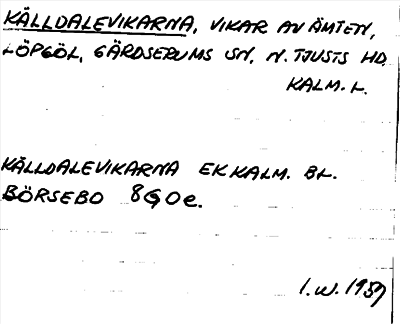 KÄLLDALEVIKARNA, VIKAR AV ÄMTEN,
LÖPGÖL, GÄRDSERUMS SN. N. TJUSTS HD.
KALM. L.
KÄLLDALEVIKARNA EK KALM. BL.
BÖRSEBO 8G0e.
I.W. 1959